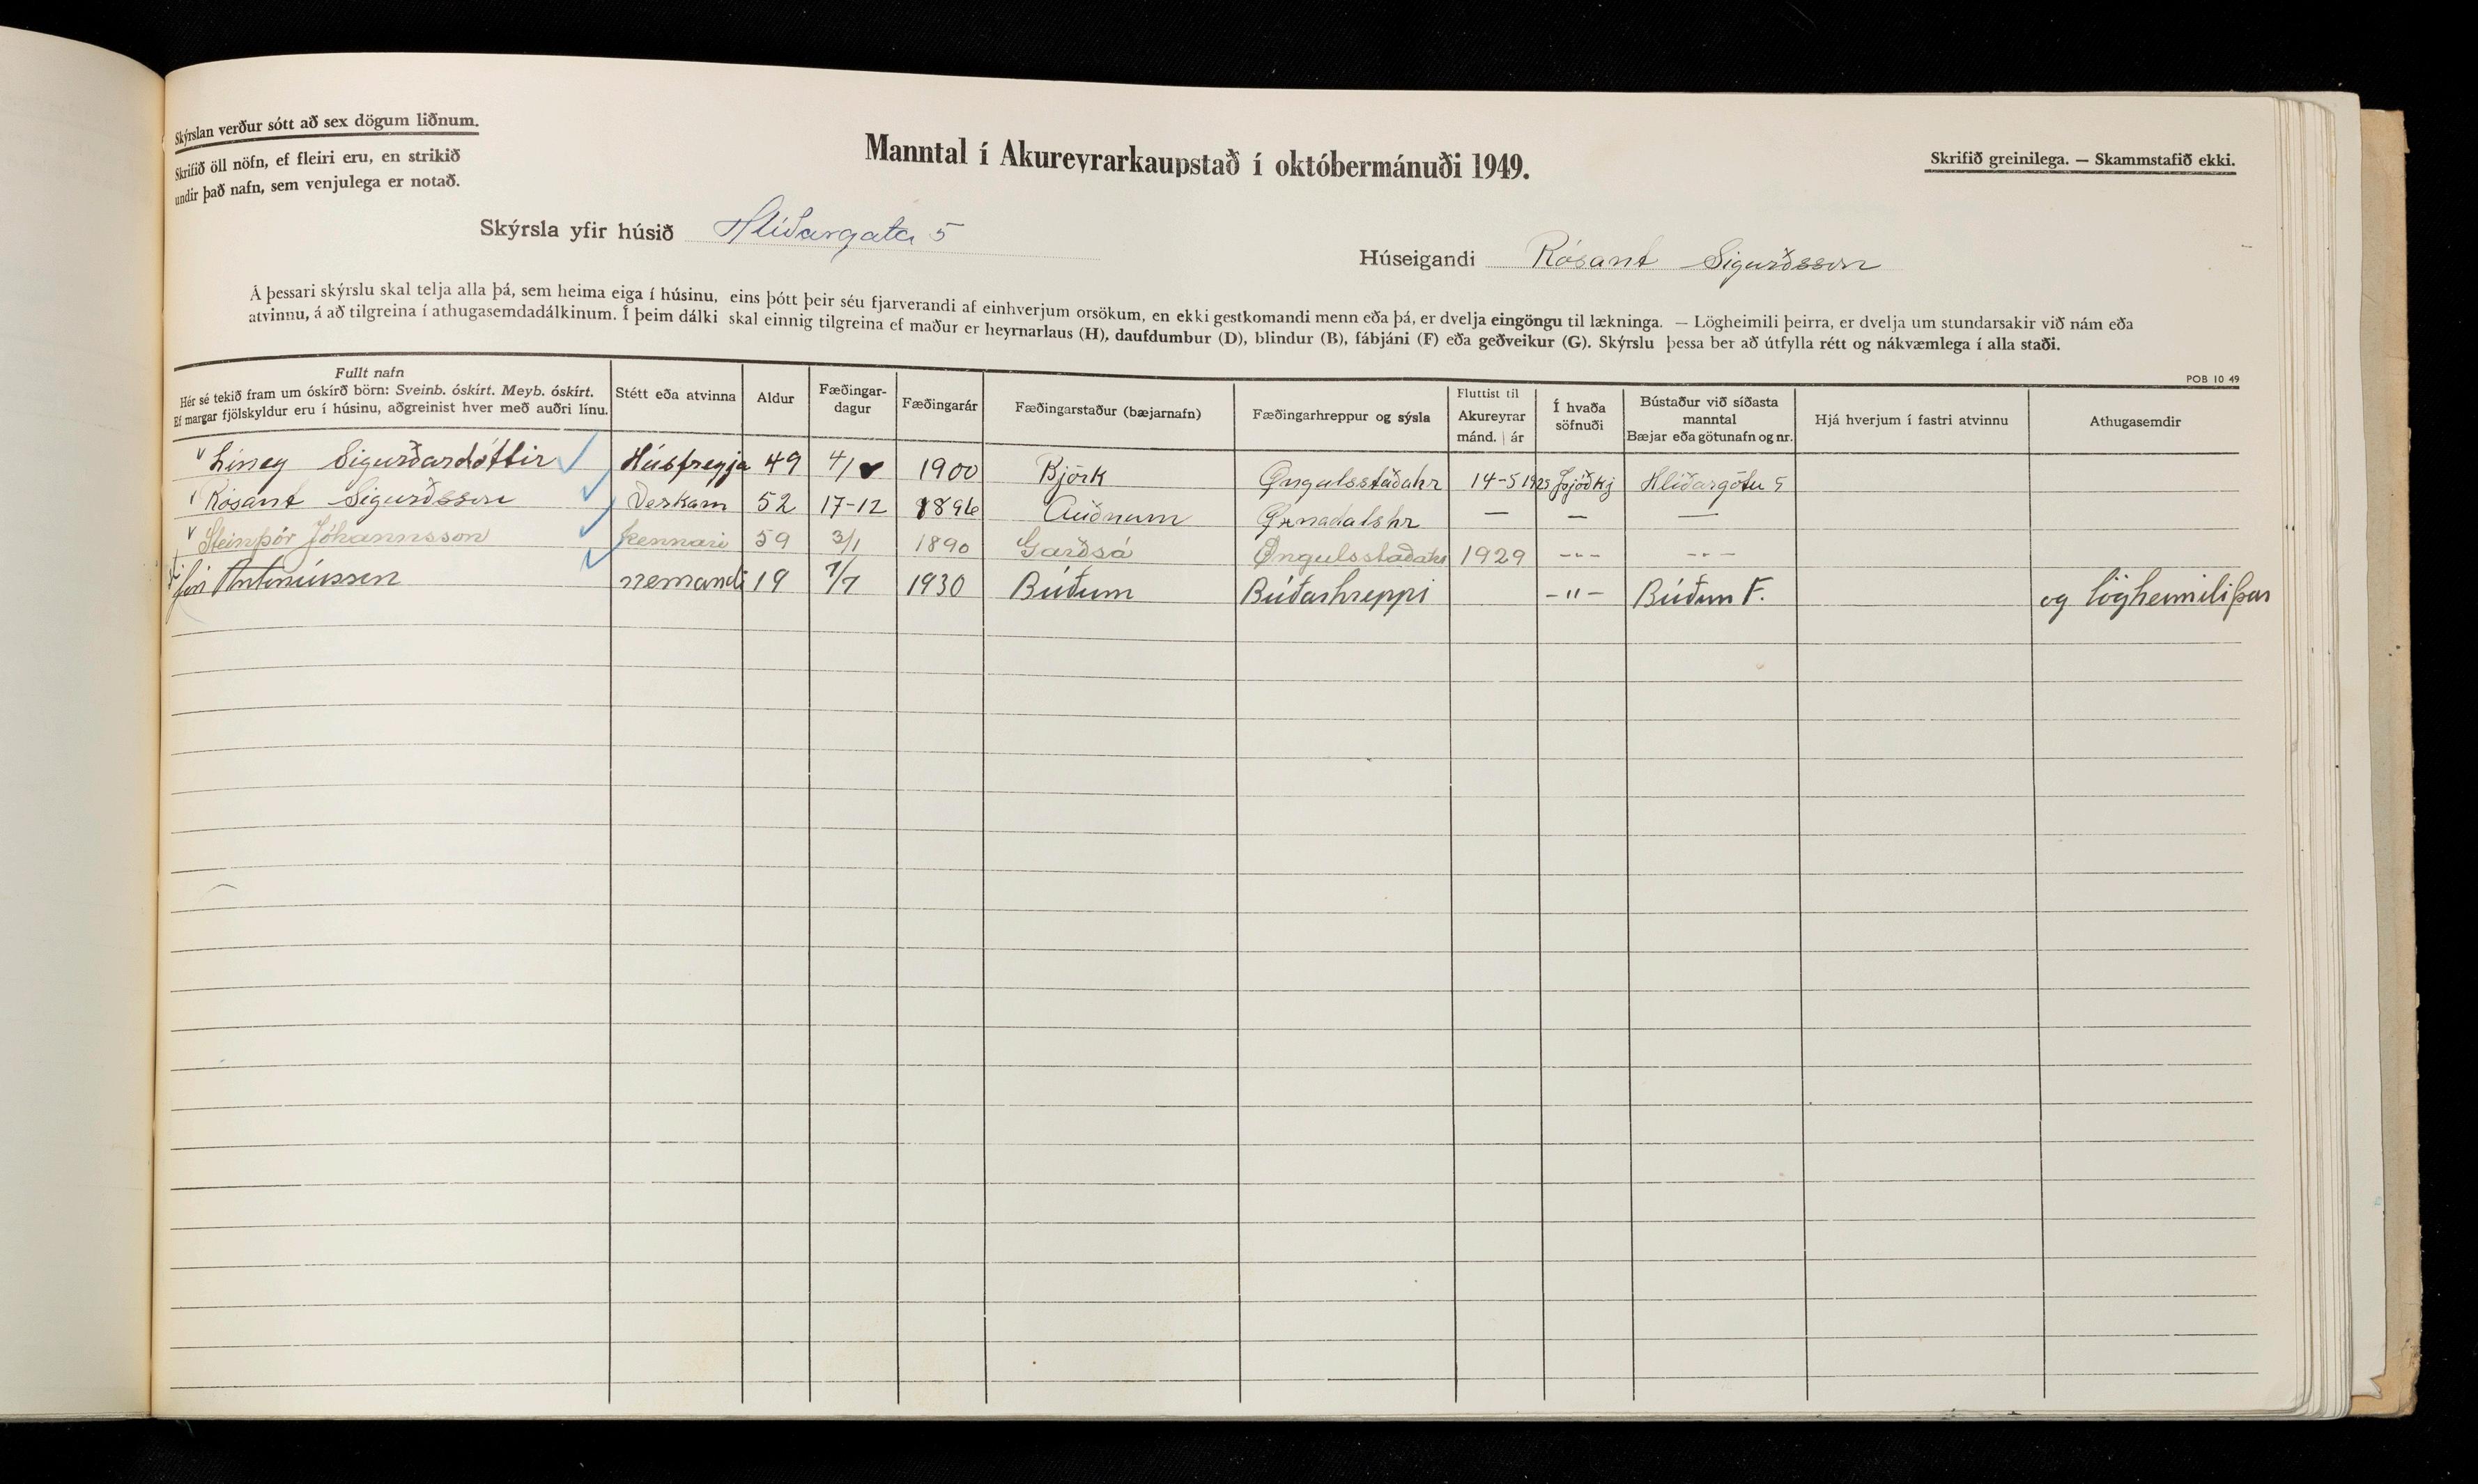 Skýrslan verður sótt að sex dögum liðnum.
Skrifið öll nöfn, ef fleiri eru, en strikið
undir það nafn, sem venjulega er notað.
Manntal í Akureyrarkaupstað í októbermánuði 1949.
Skrifið greinilega. — Skammstafið ekki.
Skýrsla yfir húsið Hlíðargata 5
Húseigandi Rósant Sigurðsson
Á þessari skýrslu skal telja alla þá, sem heima eiga í húsinu, eins þótt þeir séu fjarverandi af einhverjum orsökum, en ekki gestkomandi menn eða þá, er dvelja eingöngu til lækninga. — Lögheimili þeirra, er dvelja um stundarsakir við nám eða
atvinnu, á að tilgreina í athugasemdadálkinum. Í þeim dálki skal einnig tilgreina ef maður er heyrnarlaus (H), daufdumbur (D), blindur (B), fábjáni (F) eða geðveikur (G). Skýrslu þessa ber að útfylla rétt og nákvæmlega í alla staði.
POB 10 49
Fullt nafn
Hér sé tekið fram um óskírð börn: Sveinb. óskírt. Meyb. óskírt.
Ef margar fjölskyldur eru í húsinu, aðgreinist hver með auðri línu.
Stétt eða atvinna
Aldur
Fæðingar-
dagur
Fæðingarár
Fæðingarstaður (bæjarnafn)
Fæðingarhreppur og sýsla
Fluttist til
Akureyrar
mánd. | ár
Í hvaða
söfnuði
Bústaður við síðasta
manntal
Bæjar eða götunafn og nr.
Hjá hverjum í fastri atvinnu
Athugasemdir
Líney Sigurðardóttir Húsfreyja 49 4/1 1900 Björk Öngulsstaðahr 14-5 1925 Þjóðkj Hlíðargötu 5
Rósant Sigurðsson Verkam 52 17-12 Auðnum Öxnadalshr — — —
Steinþór Jóhannsson kennari 59 3/1 1890 Garðsá Öngulsstaðahr 1929 -"- -"-
Jón nemandi 19 7/7 1930 Búðum Búðarhreppi -"- Búðum F. og lögheimili þar